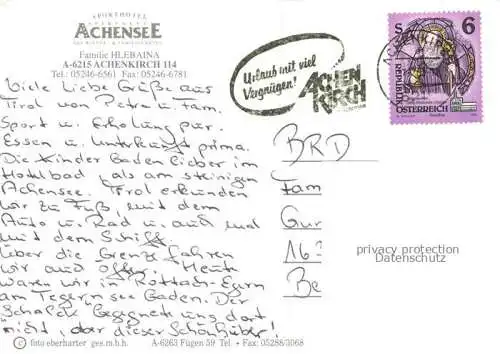 SPORTHOTEL
ACHENSEE
Familie HLEBAINA
A-6215 ACHENKIRCH 114
Tel.: 05246-6561 Fax: 05246-6781
Viele Liebe Grüße aus
Tirol von Petra u. Fam.
Sport u. Erholung pur.
Essen u. Unterkunft prima.
Die Kinder baden lieber im
Hotelbad, als am steinigen
Achensee. Tirol erkunden
wir zu Fuß, mit dem
Auto u. Rad u. auch mal
mit dem Schiff.
Über die Grenze fahren
wir auch öfter. Heute
waren wir in Rottach-Egern
am Tegernsee Baden. Der
Schalck begegnete uns dort
nicht, aber dieser Schönhuber!
Urlaub mit viel
Vergnügen!
ACHEN
KIRCH
S 6
REPUBLIK
ÖSTERREICH
BRD
Fam
Gur
163
Be
privacy protection
Datenschutz
foto eberharter ges.m.b.h. A-6263 Fügen 59 Tel. + Fax: 05288/3068